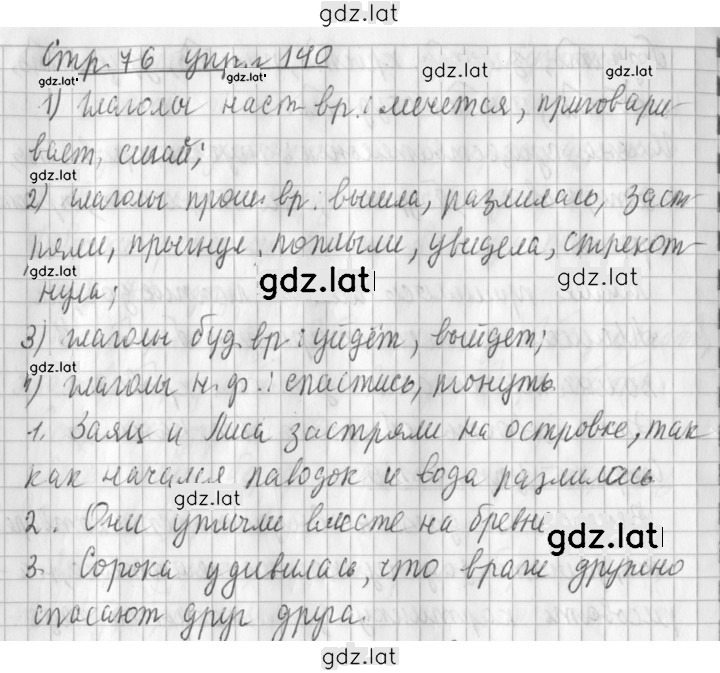 gdz.lat
Стр 76 упр. 140
gdz.lat gdz.lat gdz.lat
1) Глаголы наст вр.: мечется, приговари-
вает, сигай;
gdz.lat
2) глаголы прош. вр. вышла, разлилась, заст-
ряли, прыгнул, поплыли, увидела, стрекот-
gdz.lat gdz.lat gdz.lat
нула;
3) глаголы буд вр: уйдёт, выйдет;
gdz.lat
4) глаголы н. ф.: спастись, тонуть.
1. Заяц и Лиса застряли на островке, так
как начался паводок и вода разлилась
gdz.lat
2. Они уплыли вместе на бревне
gdz.lat
3. Сорока удивилась, что враги дружно
спасают друг друга.
gdz.lat